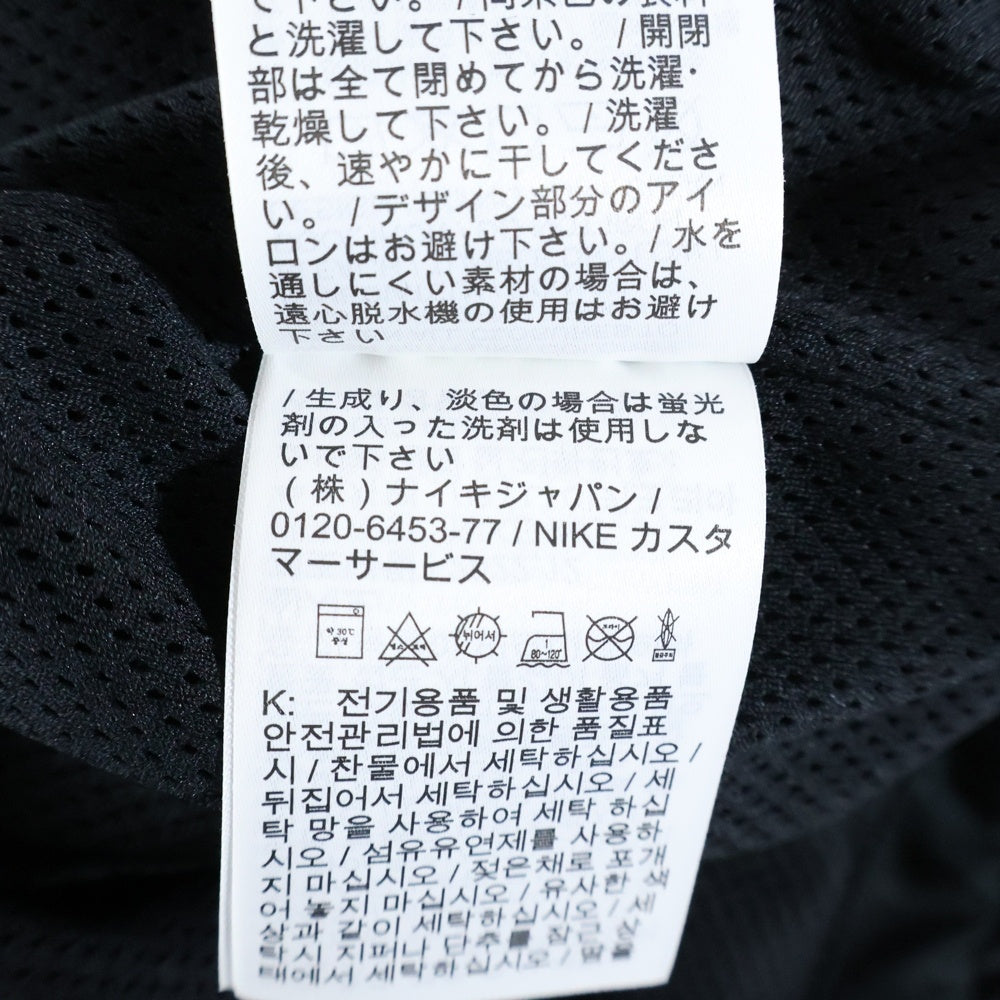 て下さい。 / 同系色の衣料
と洗濯して下さい。 / 開閉
部は全て閉めてから洗濯・
乾燥して下さい。 / 洗濯
後、速やかに干してくださ
い。 / デザイン部分のアイ
ロンはお避け下さい。/ 水を
通しにくい素材の場合は、
遠心脱水機の使用はお避け
下さい
/ 生成り、淡色の場合は蛍光
剤の入った洗剤は使用しな
いで下さい
( 株 ) ナイキジャパン /
0120-6453-77 / NIKE カスタ
マーサービス
약 30℃
중성
뒤어서
1
80~120°
드라이
K: 전기용품 및 생활용품
안전관리법에 의한 품질표
시 / 찬물에서 세탁하십시오 /
뒤집어서 세탁하십시오 / 세
탁 망을 사용하여 세탁 하십
시오 / 섬유유연제를 사용하
지 마십시오 / 젖은채로 포개
어 놓지 마십시오 / 유사한 색
상과 같이 세탁하십시오 / 세
탁시 지퍼나 단추를 잠그고
택에서 세탁하십시오 /